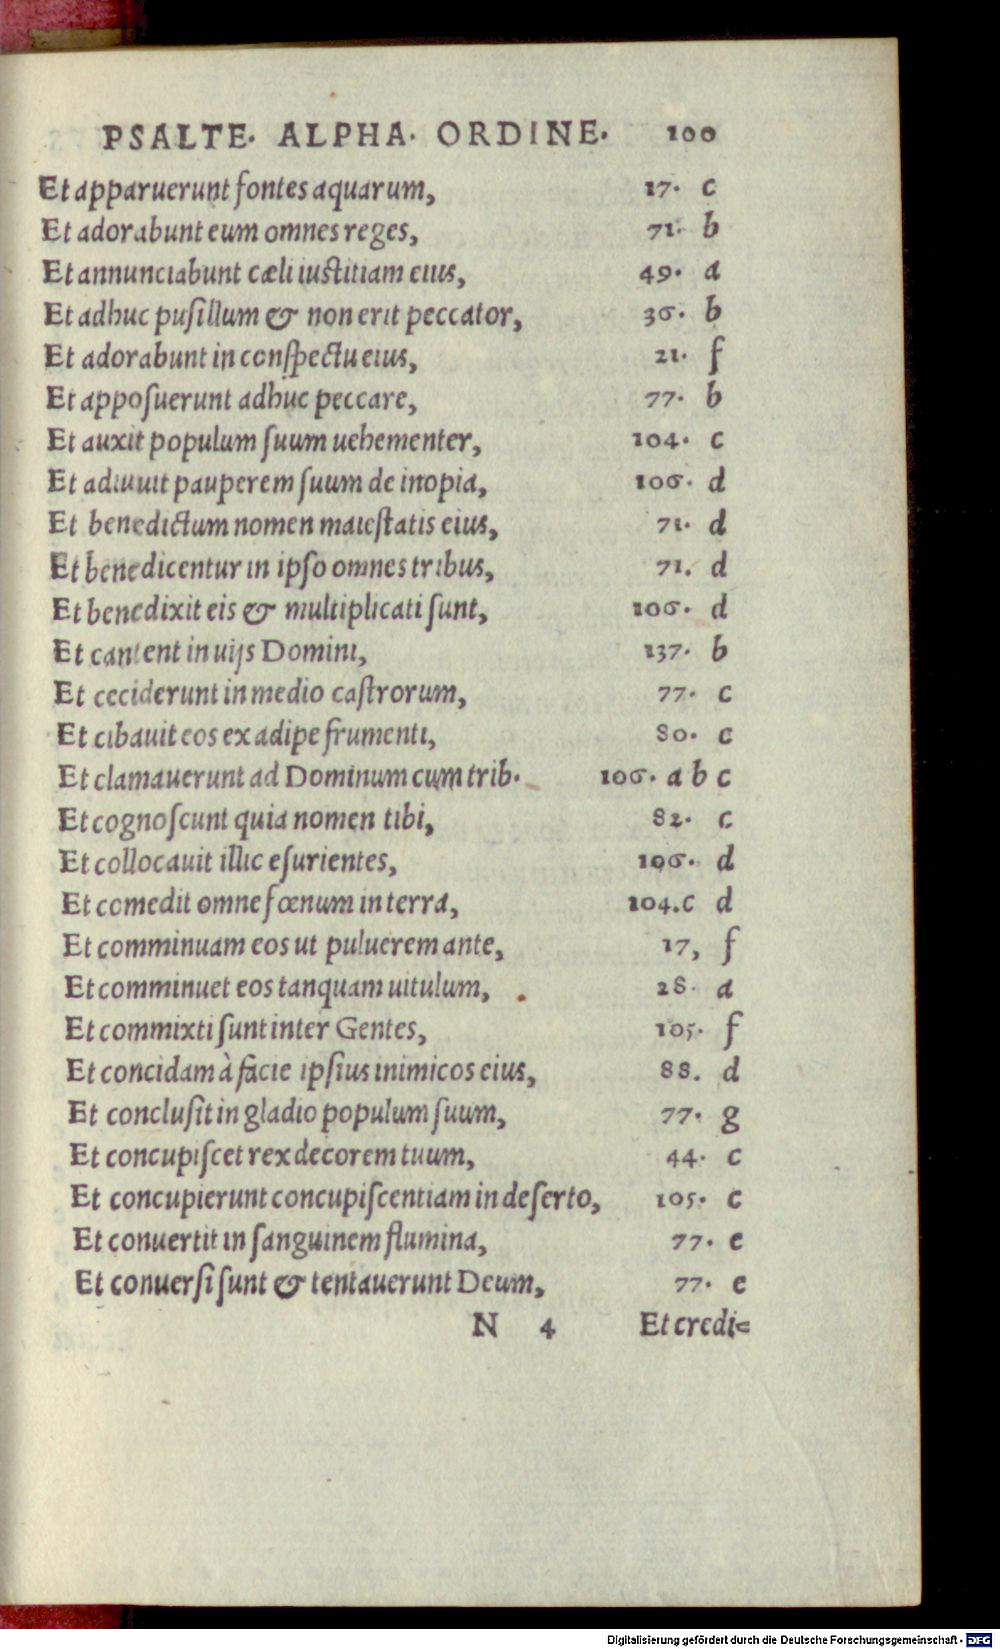 PSALTE· ALPHA· ORDINE· 100
Et apparuerunt fontes aquarum, 17· c
Et adorabunt eum omnes reges, 71· b
Et annunciabunt cæli iustitiam eius, 49· a
Et adhuc pusillum & non erit peccator, 36· b
Et adorabunt in conspectu eius, 21· f
Et apposuerunt adhuc peccare, 77· b
Et auxit populum suum uehementer, 104· c
Et adiuuit pauperem suum de inopia, 106· d
Et benedictum nomen maiestatis eius, 71· d
Et benedicentur in ipso omnes tribus, 71. d
Et benedixit eis & multiplicati sunt, 106· d
Et cantent in uijs Domini, 137· b
Et ceciderunt in medio castrorum, 77· c
Et cibauit eos ex adipe frumenti, 80· c
Et clamauerunt ad Dominum cum trib· 106· a b c
Et cognoscunt quia nomen tibi, 82· c
Et collocauit illic esurientes, 106· d
Et comedit omne fœnum in terra, 104.c d
Et comminuam eos ut puluerem ante, 17, f
Et comminuet eos tanquam uitulum, 28· a
Et commixti sunt inter Gentes, 105· f
Et concidam à facie ipsius inimicos eius, 88. d
Et conclusit in gladio populum suum, 77· g
Et concupiscet rex decorem tuum, 44· c
Et concupierunt concupiscentiam in deserto, 105· c
Et conuertit in sanguinem flumina, 77· e
Et conuersi sunt & tentauerunt Deum, 77· e
N 4 Et credi=
Digitalisierung gefördert durch die Deutsche Forschungsgemeinschaft - DFG